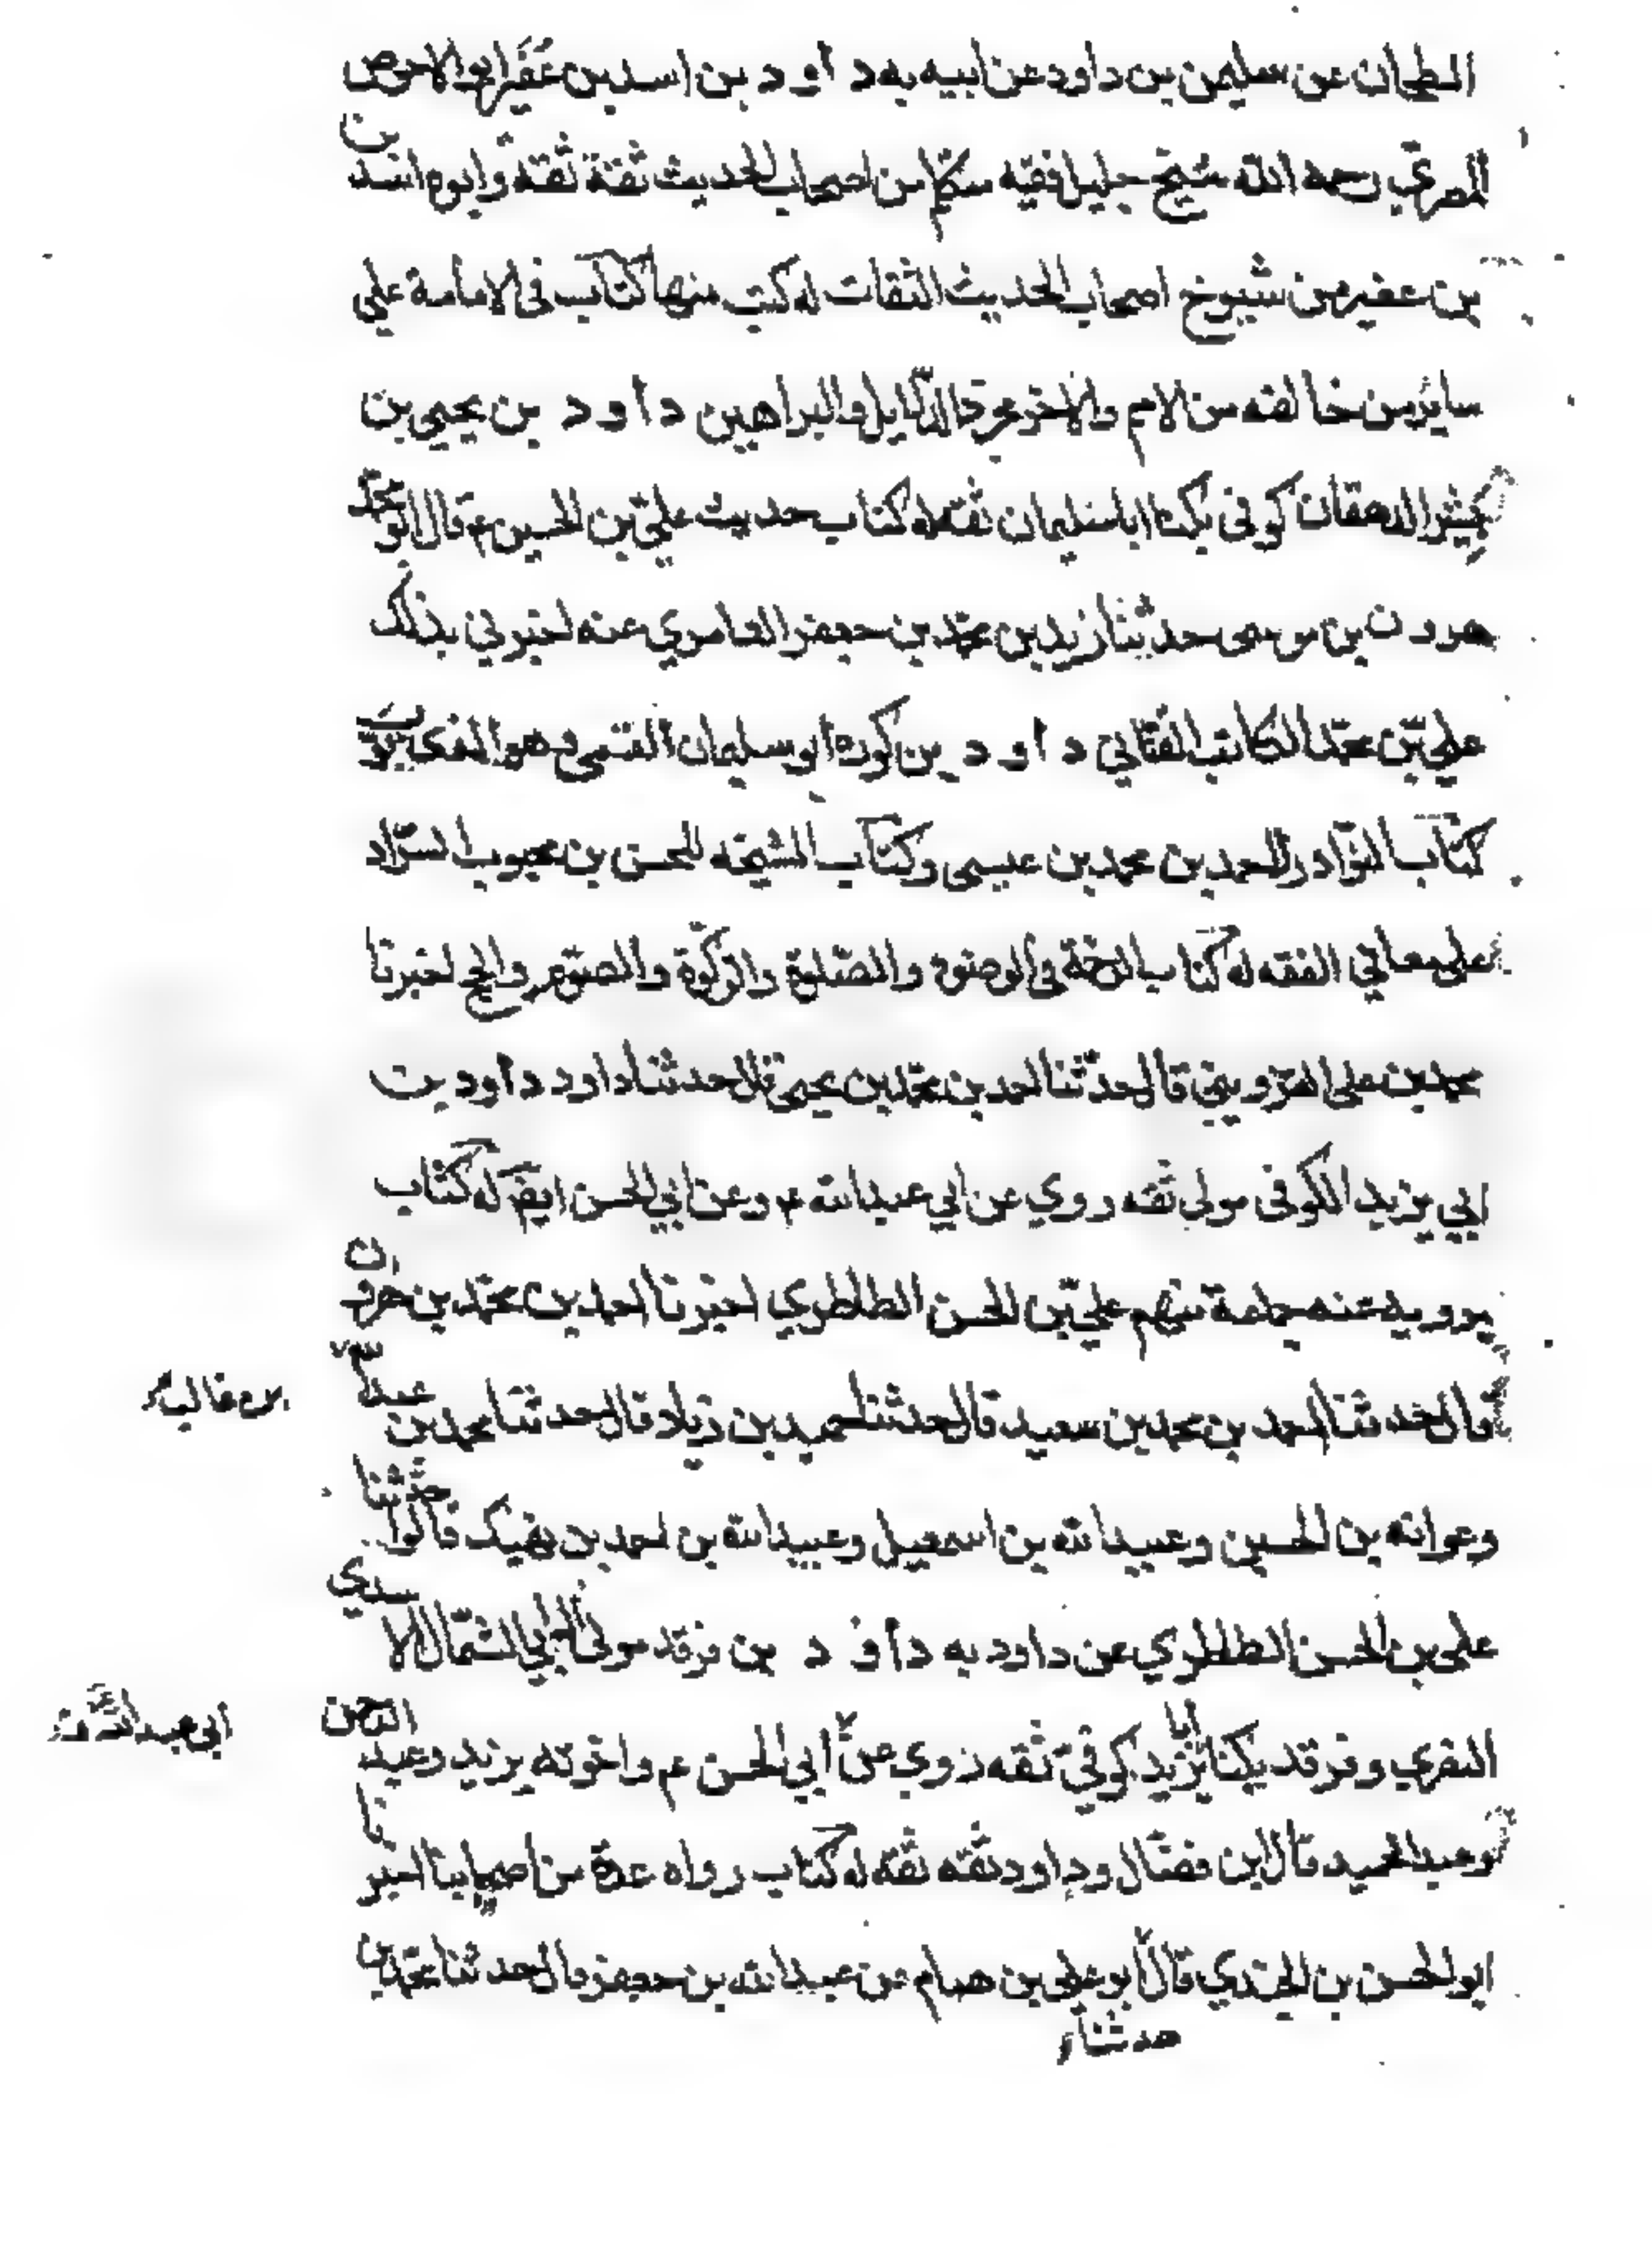 الطحان عن سليمن بن داود عن ابيه به داود بن اسد بن عفير ابو الاحوص
المصري رحمه الله شيخ جليل فقيه متكلم من اصحاب الحديث ثقة ثقه وابوه اسد بن
بن عفير من شيوخ اصحاب الحديث الثقات له كتب منها كتاب في الامامة على
ساير من خالفه من الامم والاخر مجرد الدلايل والبراهين داود بن يحيى بن
بشير الدهقان كوفي يكنا ابا سليمان ثقه له كتاب حديث علي بن الحسين ع قال ابو محمد
هرون بن موسى حدثنا زيد بن محمد بن جعفر العامري عنه اخبرني بذلك
علي بن محمد الكاتب القناني داود بن كوره ابو سليمان القمي وهو الذي بوب
كتاب النوادر لاحمد بن محمد بن عيسى وكتاب المشيخه للحسن بن محبوب السراد
على معاني الفقه له كتاب الرحمة في الوضوء والصلوة والزكوة والصوم والحج اخبرنا
محمد بن علي القزويني قال حدثنا احمد بن محمد بن يحيى قال حدثنا داود داود بن
ابي يزيد الكوفي مولى ثقه روي عن ابي عبد الله ع وعن ابي الحسن ايضا له كتاب
يرويه عنه جماعة منهم علي بن الحسن الطاطري اخبرنا احمد بن محمد بن هرون
قال حدثنا احمد بن محمد بن سعيد قال حدثنا حميد بن زياد قال حدثنا محمد بن عبد الله
بن غالب
وعوانه بن الحسين وعبيد الله بن اسمعيل وعبيد الله بن احمد بن نهيك قالوا حدثنا
علي بن الحسن الطاطري عن داود به داود بن فرقد مولى ال ابي السمال الاسدي
النصري وفرقد يكنا ابا يزيد كوفي ثقه روي عن ابي الحسن ع واخوته يزيد وعبد الرحمن
ابي عبد الله
وعبد الحميد قال ابن فضال وداود ثقه ثقه له كتاب رواه عدة من اصحابنا اخبرنا
ابو الحسن بن الجندي قال ابو علي بن همام عن عبد الله بن جعفر قال حدثنا محمد بن
حدثنا